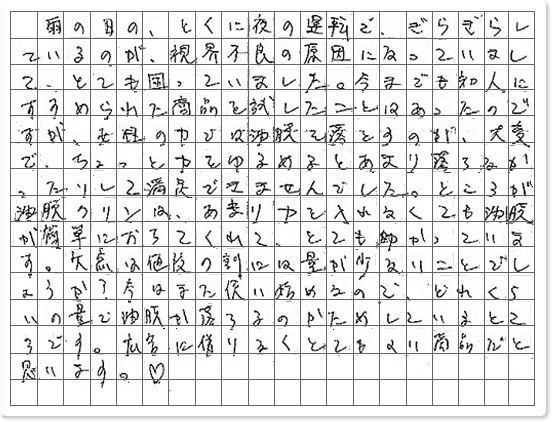 雨の日の、とくに夜の運転で、ぎらぎらし
ているのが、視界不良の原因になっていまし
て、とても困っていました。今までも知人に
すすめられた商品を試したことはあったので
すが、女性の力では油膜を落とすのが、大変
で、ちょっと力をゆるめるとあまり落ちなか
ったりして満足できませんでした。ところが
油膜のリンは、あまり力を入れなくても油膜
が簡単におちてくれて、とても助かっていま
す。欠点は値段の割には量が少ないことでし
ょうか？今はまだ使い始めなので、どれくら
いの量で油膜が落ちるのかためしているとこ
ろです。広告に偽りなくとてもよい商品だと
思います。♡